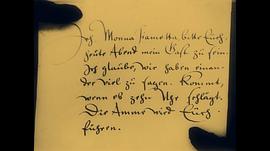 Ich Monna Fiametta bitte Euch,
heute Abend mein Gast zu sein.
Ich glaube, wir haben einan-
der viel zu sagen. Kommt,
wenn es zehn Uhr schlägt.
Die Amme wird Euch
führen.